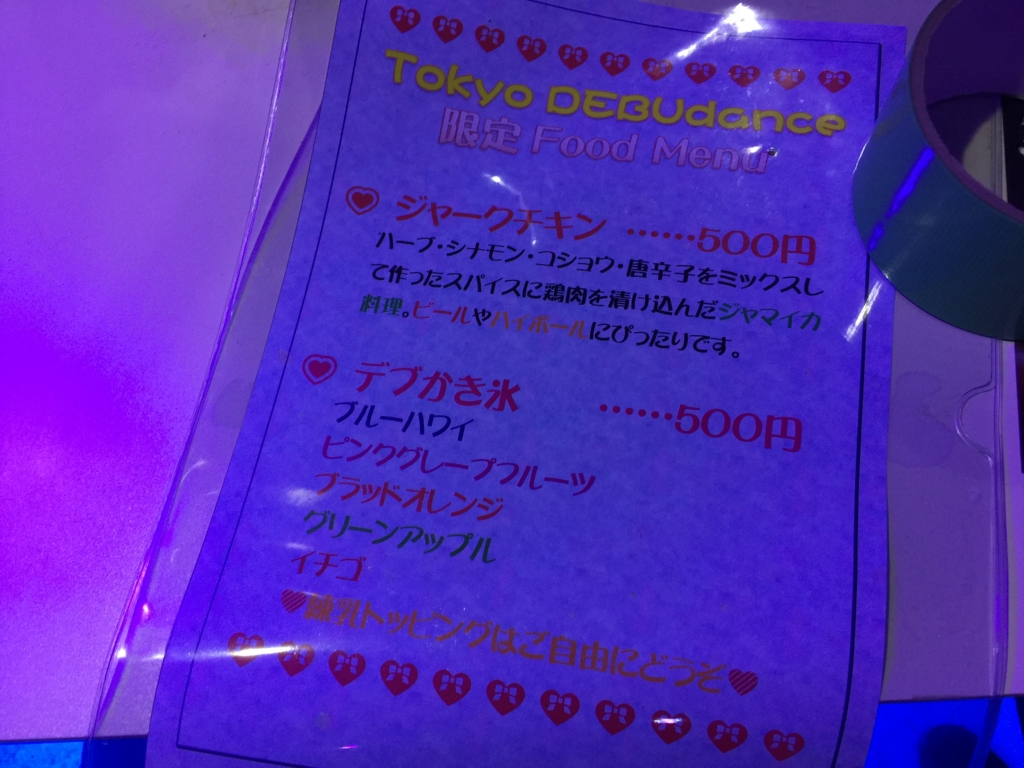 Tokyo DEBUdance
限定 Food Menu
ジャークチキン ……500円
ハーブ・シナモン・コショウ・唐辛子をミックスし
て作ったスパイスに鶏肉を漬け込んだジャマイカ
料理。ビールやハイボールにぴったりです。
デブかき氷 ……500円
ブルーハワイ
ピンクグレープフルーツ
ブラッドオレンジ
グリーンアップル
イチゴ
練乳トッピングはご自由にどうぞ